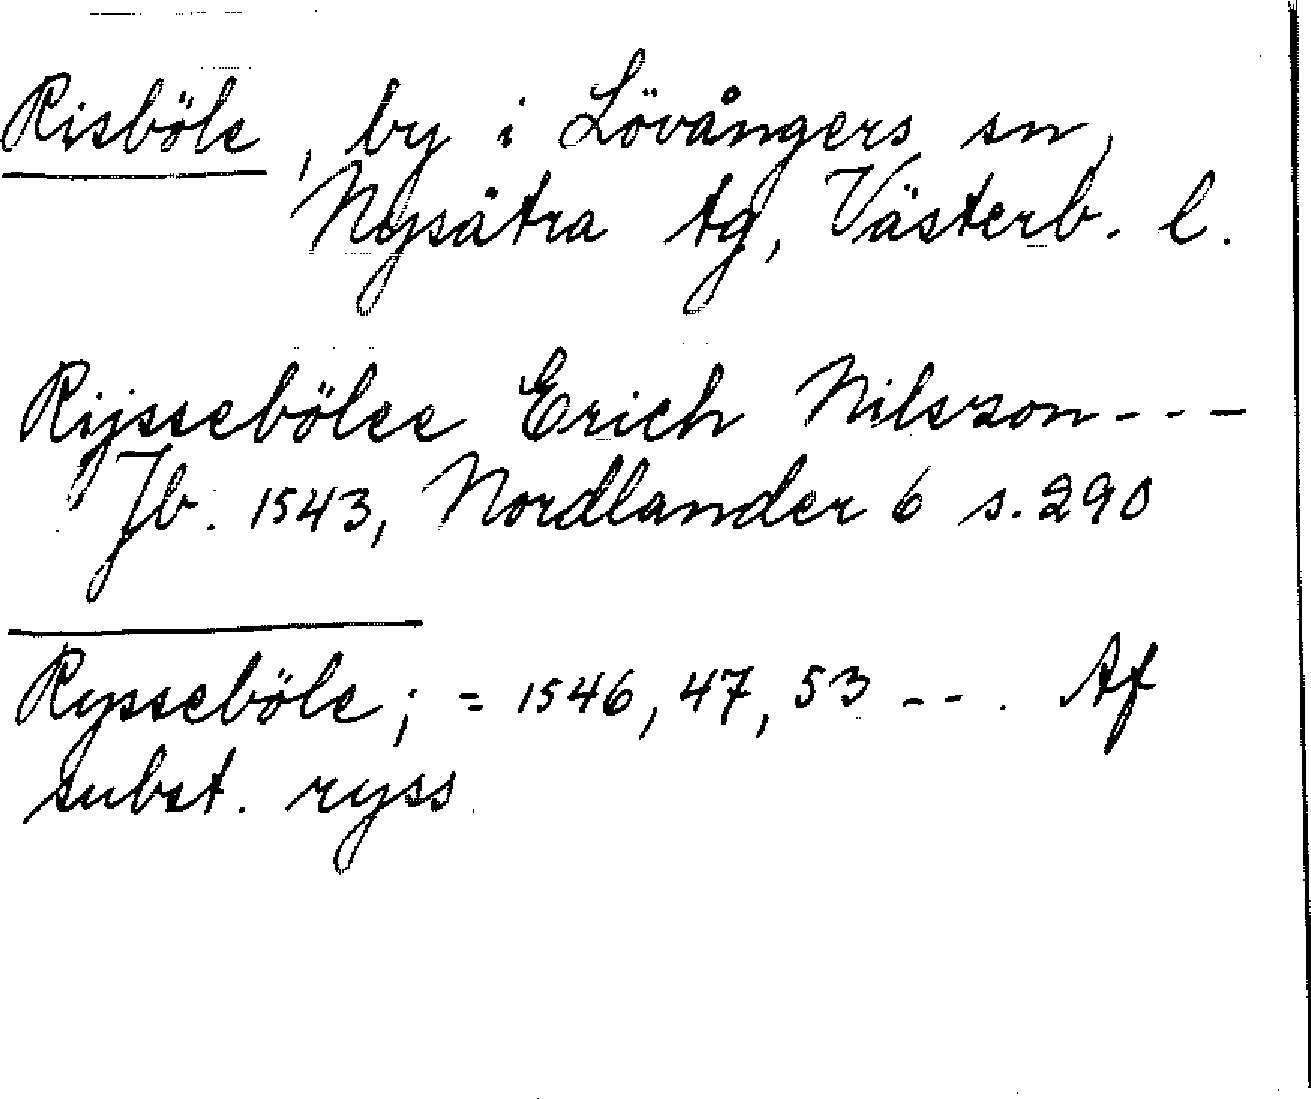 Risböle, by i Lövångers sn,
Nysätra tg, Västerb. l.
Rijssebölee Erich Nilsson - - -
Jb. 1543, Nordlander 6 s. 290
Rysseböle; = 1546, 47, 53 - - . Af
subst. ryss